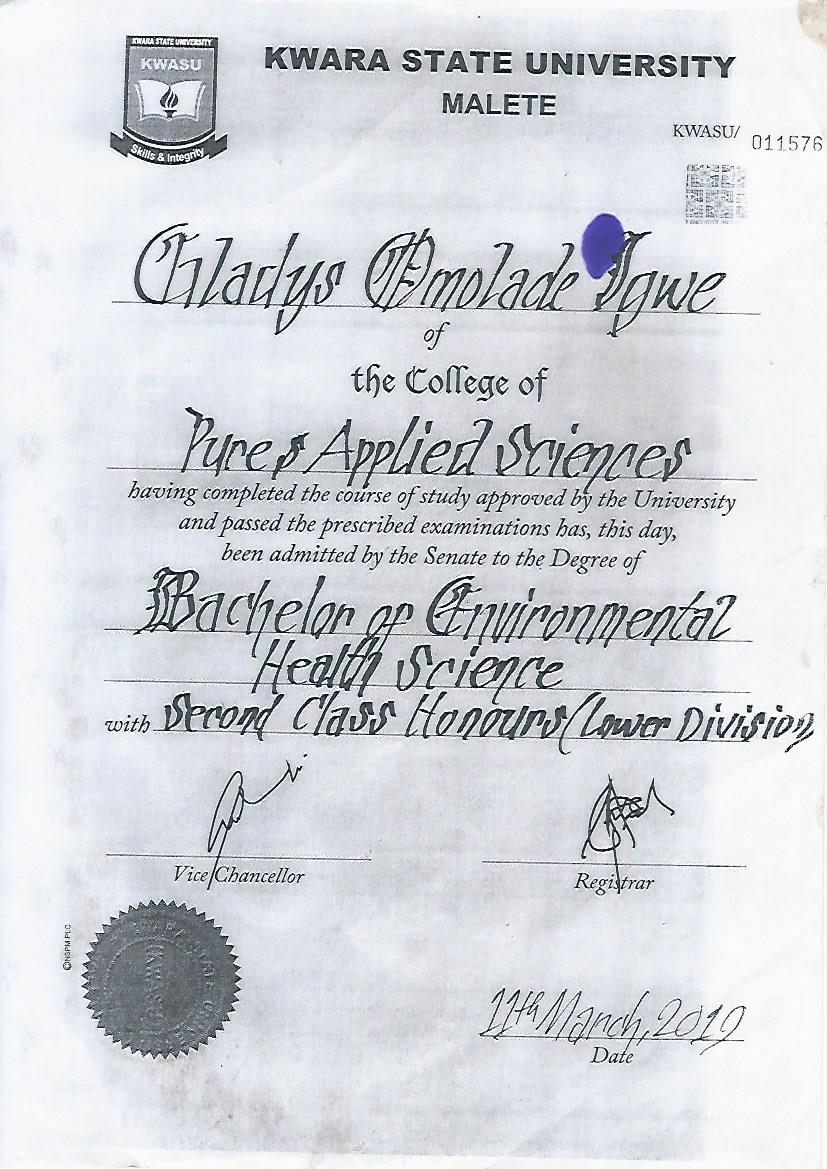 KWARA STATE UNIVERSITY
KWASU
Skills & Integrity
KWARA STATE UNIVERSITY
MALETE
KWASU/ 011576
Gladys Omolade Igwe
of
the College of
Pure & Applied Sciences
having completed the course of study approved by the University
and passed the prescribed examinations has, this day,
been admitted by the Senate to the Degree of
Bachelor of Environmental
Health Science
with Second Class Honours (Lower Division)
Vice Chancellor
Registrar
©NSPM PLC
KWASU
11th March, 2019
Date